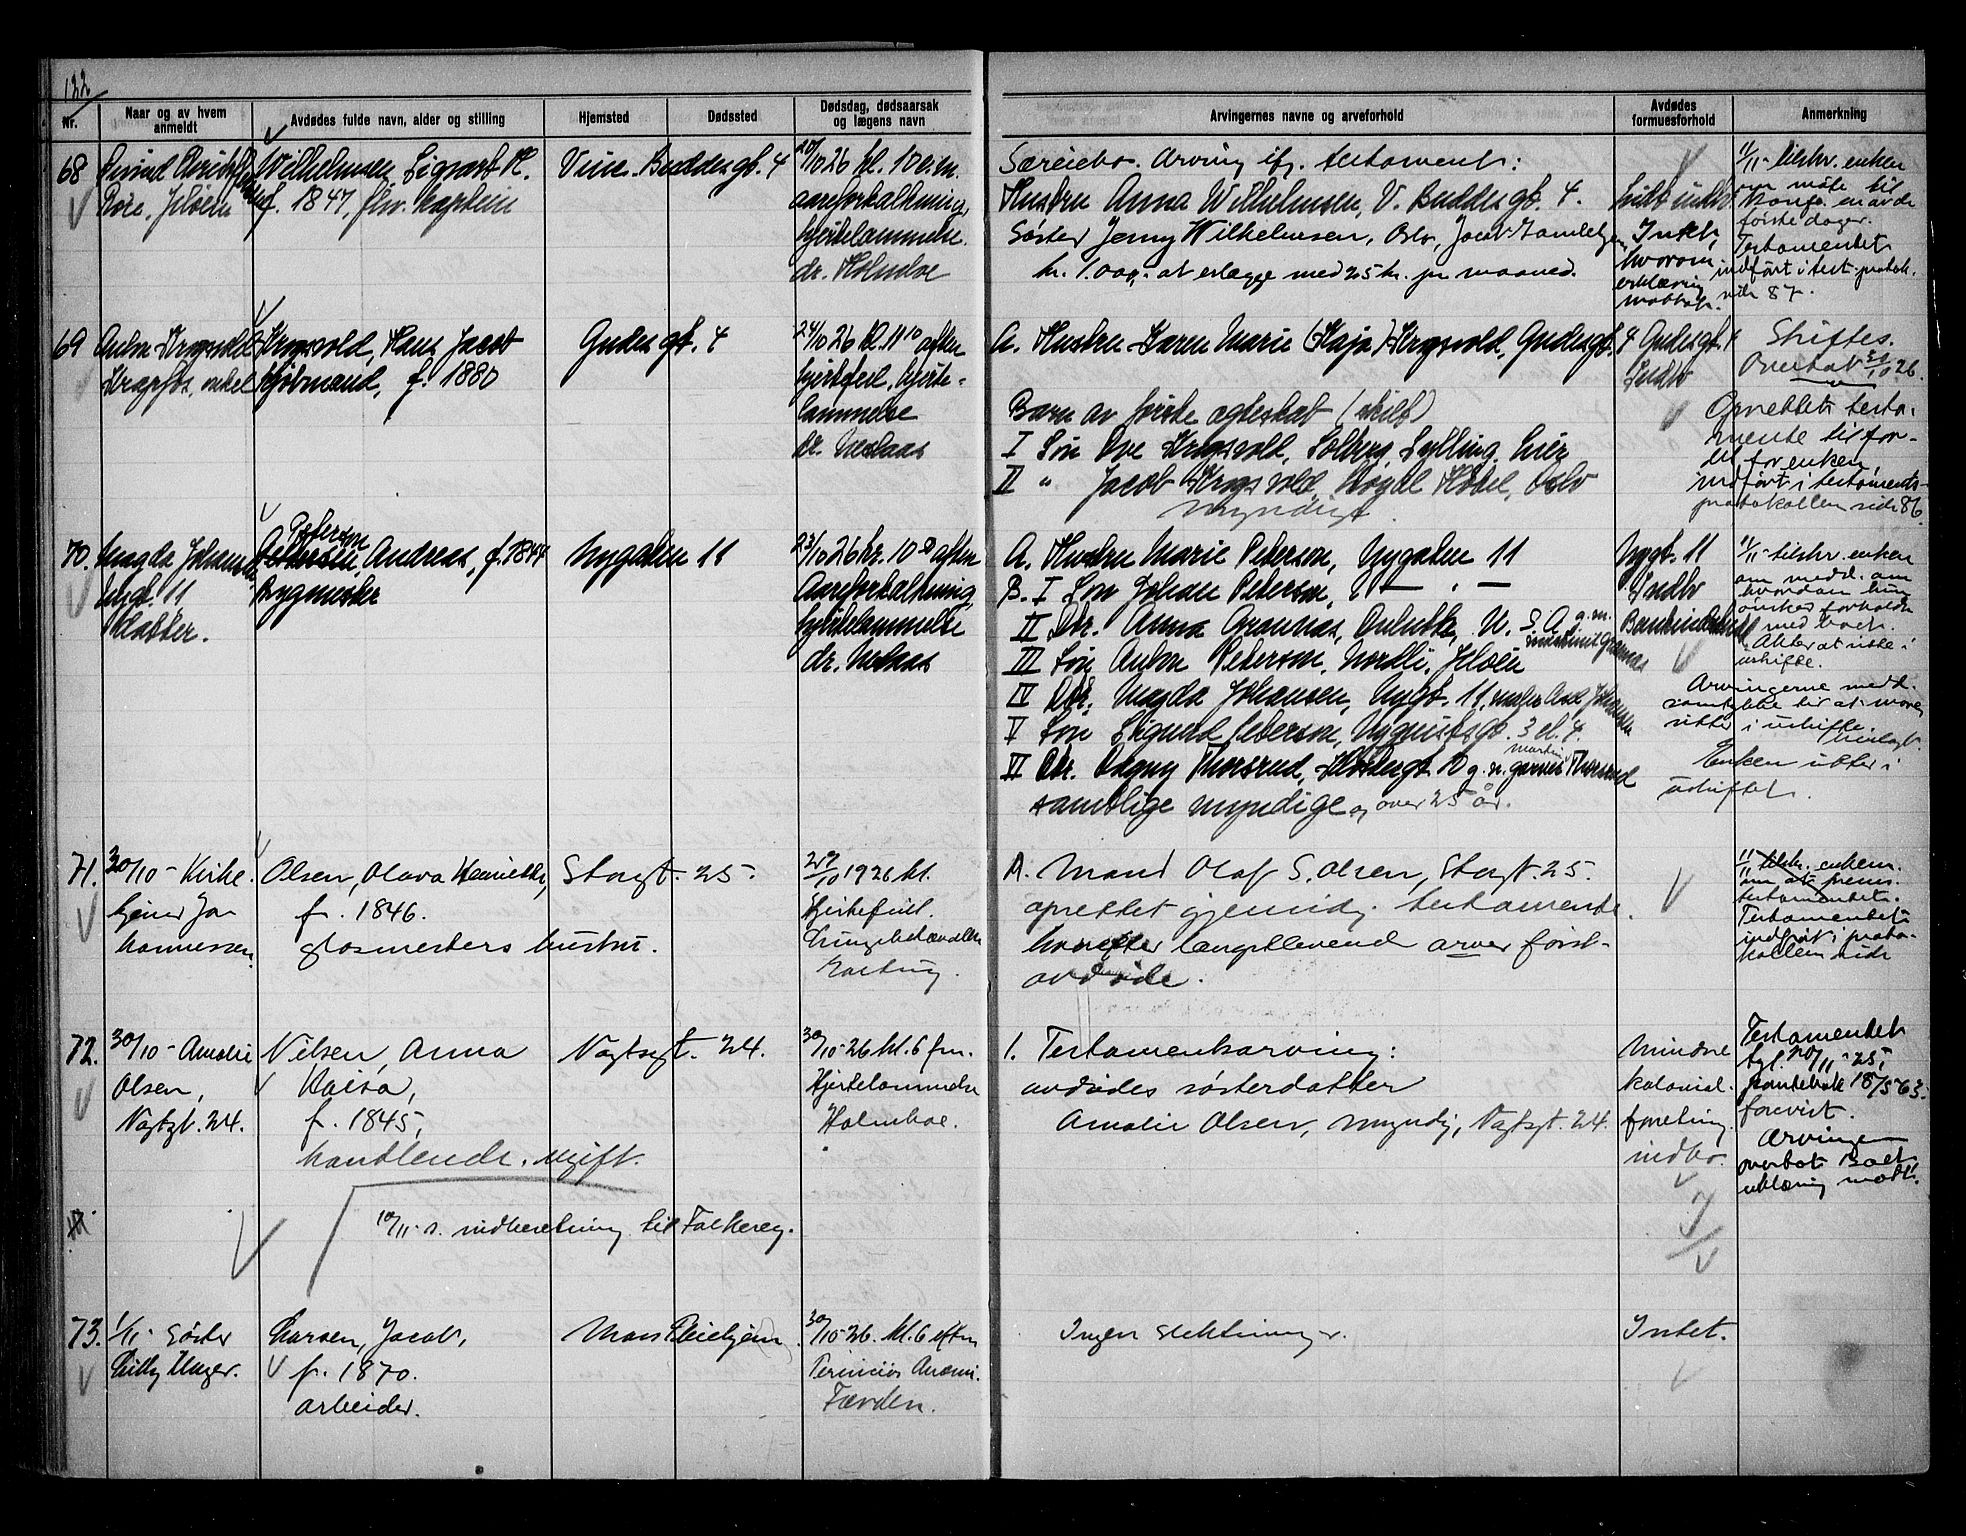 122
Nr.
Naar og av hvem
anmeldt
Avdødes fulde navn, alder og stilling
Hjemsted
Dødssted
Dødsdag, dødsaarsak
og lægens navn
Arvingernes navne og arveforhold
Avdødes
formuesforhold
Anmerkning
68
Røre, Jeløen
Wilhelmsen, Sigvart H.
f. 1847, fhv. kaptein
Vinc. Buddes gt. 4
20/10 26 kl. 10 e.m.
aareforkalkning,
hjertelammelse.
dr. Holmboe
Særeiebo. Arving ifg. testament:
Hustru Anna Wilhelmsen, V. Buddes gt. 4.
Søster Jenny Wilhelmsen, Oslo, Jacob
kr. 1.000,- at erlægge med 25 kr. pr maaned.
Litt indbo
Intet,
hvorom
erklæring
mottat.
11/11 - tilskr. enken
om møte til
en av de
første dager.
Testamentet
indført i test. protok.
side 87.
69
Krapfos, onkel
Krogsvold, Hans Jacob
Kjøbmand, f. 1880
Gudes gt. 4
24/10 26 kl. 11 10 aften
hjertefeil, hjerte-
lammelse
dr. Neslaas
A. Hustru Karen Marie (Kaja) Krogsvold, Gudesgt. 4
Barn av første egteskab (skilt)
I Søn Ove Krogsvold, Solberg, Sylling, Lier
II " Jacob Krogsvold, Royal Hotel, Oslo
myndige
Gudesgt. 4
Indbo
Skiftes.
Overtat 30/10 26.
Oprettet testa-
mente til for-
del for enken,
indført i testaments-
protokollen side 86.
70.
Magda Johansen
Nygt. 11
datter.
Peterson
Andreas, f. 1844
Bygmester
Nygaten 11
23/10 26 kl. 10 50 aften
Aareforkalkning,
hjertelammelse
dr. Neslaas
A. Hustru Marie Peterson, Nygaten 11
B. I Søn Johan Peterson, — " —
II Dtr. Anna Grannas, Duluth, U. S. A. g. m.
III Søn Anton Peterson, Nordli, Jeløen
IV Dtr. Magda Johansen, Nygt. 11,
V Søn Sigurd Peterson, 3 el. 4.
VI Dtr. Dagny Thorsrud, 10 g. m. garver Martin Thorsrud
samtlige myndige og over 25 år.
Nygt. 11
Indbo
11/11 - tilskr. enken
om medd. om
hvordan hun
ønsker forholdt
med boet.
Akter at sitte i
uskifte.
Arvingerne medd.
samtykke til at moren
sitter i uskifte.
Enken sitter i
uskiftet.
71.
30/10 - Kirke-
tjener Jo-
hannessen.
Olsen, Olava Henriette,
f. 1846.
glasmesters hustru.
Storgt. 25.
29/10 1926 kl.
Hjertefeil.
A. Mand Olaf S. Olsen, Storgt. 25.
oprettet gjensidig testamente,
hvorefter længstlevende arver først-
avdøde.
11/11 tilskr. enkem.
om at frems.
testamentet.
Testamentet
indført i proto-
kollen side
72.
30/10 - Amalie
Olsen,
Vogtsgt. 24.
Nilsen, Anna
Kaisa,
f. 1845,
handlende, ugift.
Vogtsgt. 24.
30/10 - 26 kl. 6 fm.
Hjertelammelse
Holmboe.
1. Testamentsarving:
avdødes søsterdatter
Amalie Olsen, myndig, Vogtsgt. 24.
Mindre
kolonial-
forretning.
indbo.
Testamentet
tgl. 20/11 - 25,
pantebok 18/563.
forevist.
Arvingen
overtat Boet
erklæring mott.
10/11 s. indberetning til Folkereg.
73.
1/11 - Søster
Unger.
Larsen, Jacob,
f. 1870.
arbeider.
Moss Pleiehjem
30/10 - 26. kl. 6 eftm
Perniciøs Anæmi.
Færden.
Ingen slektninger.
Intet.